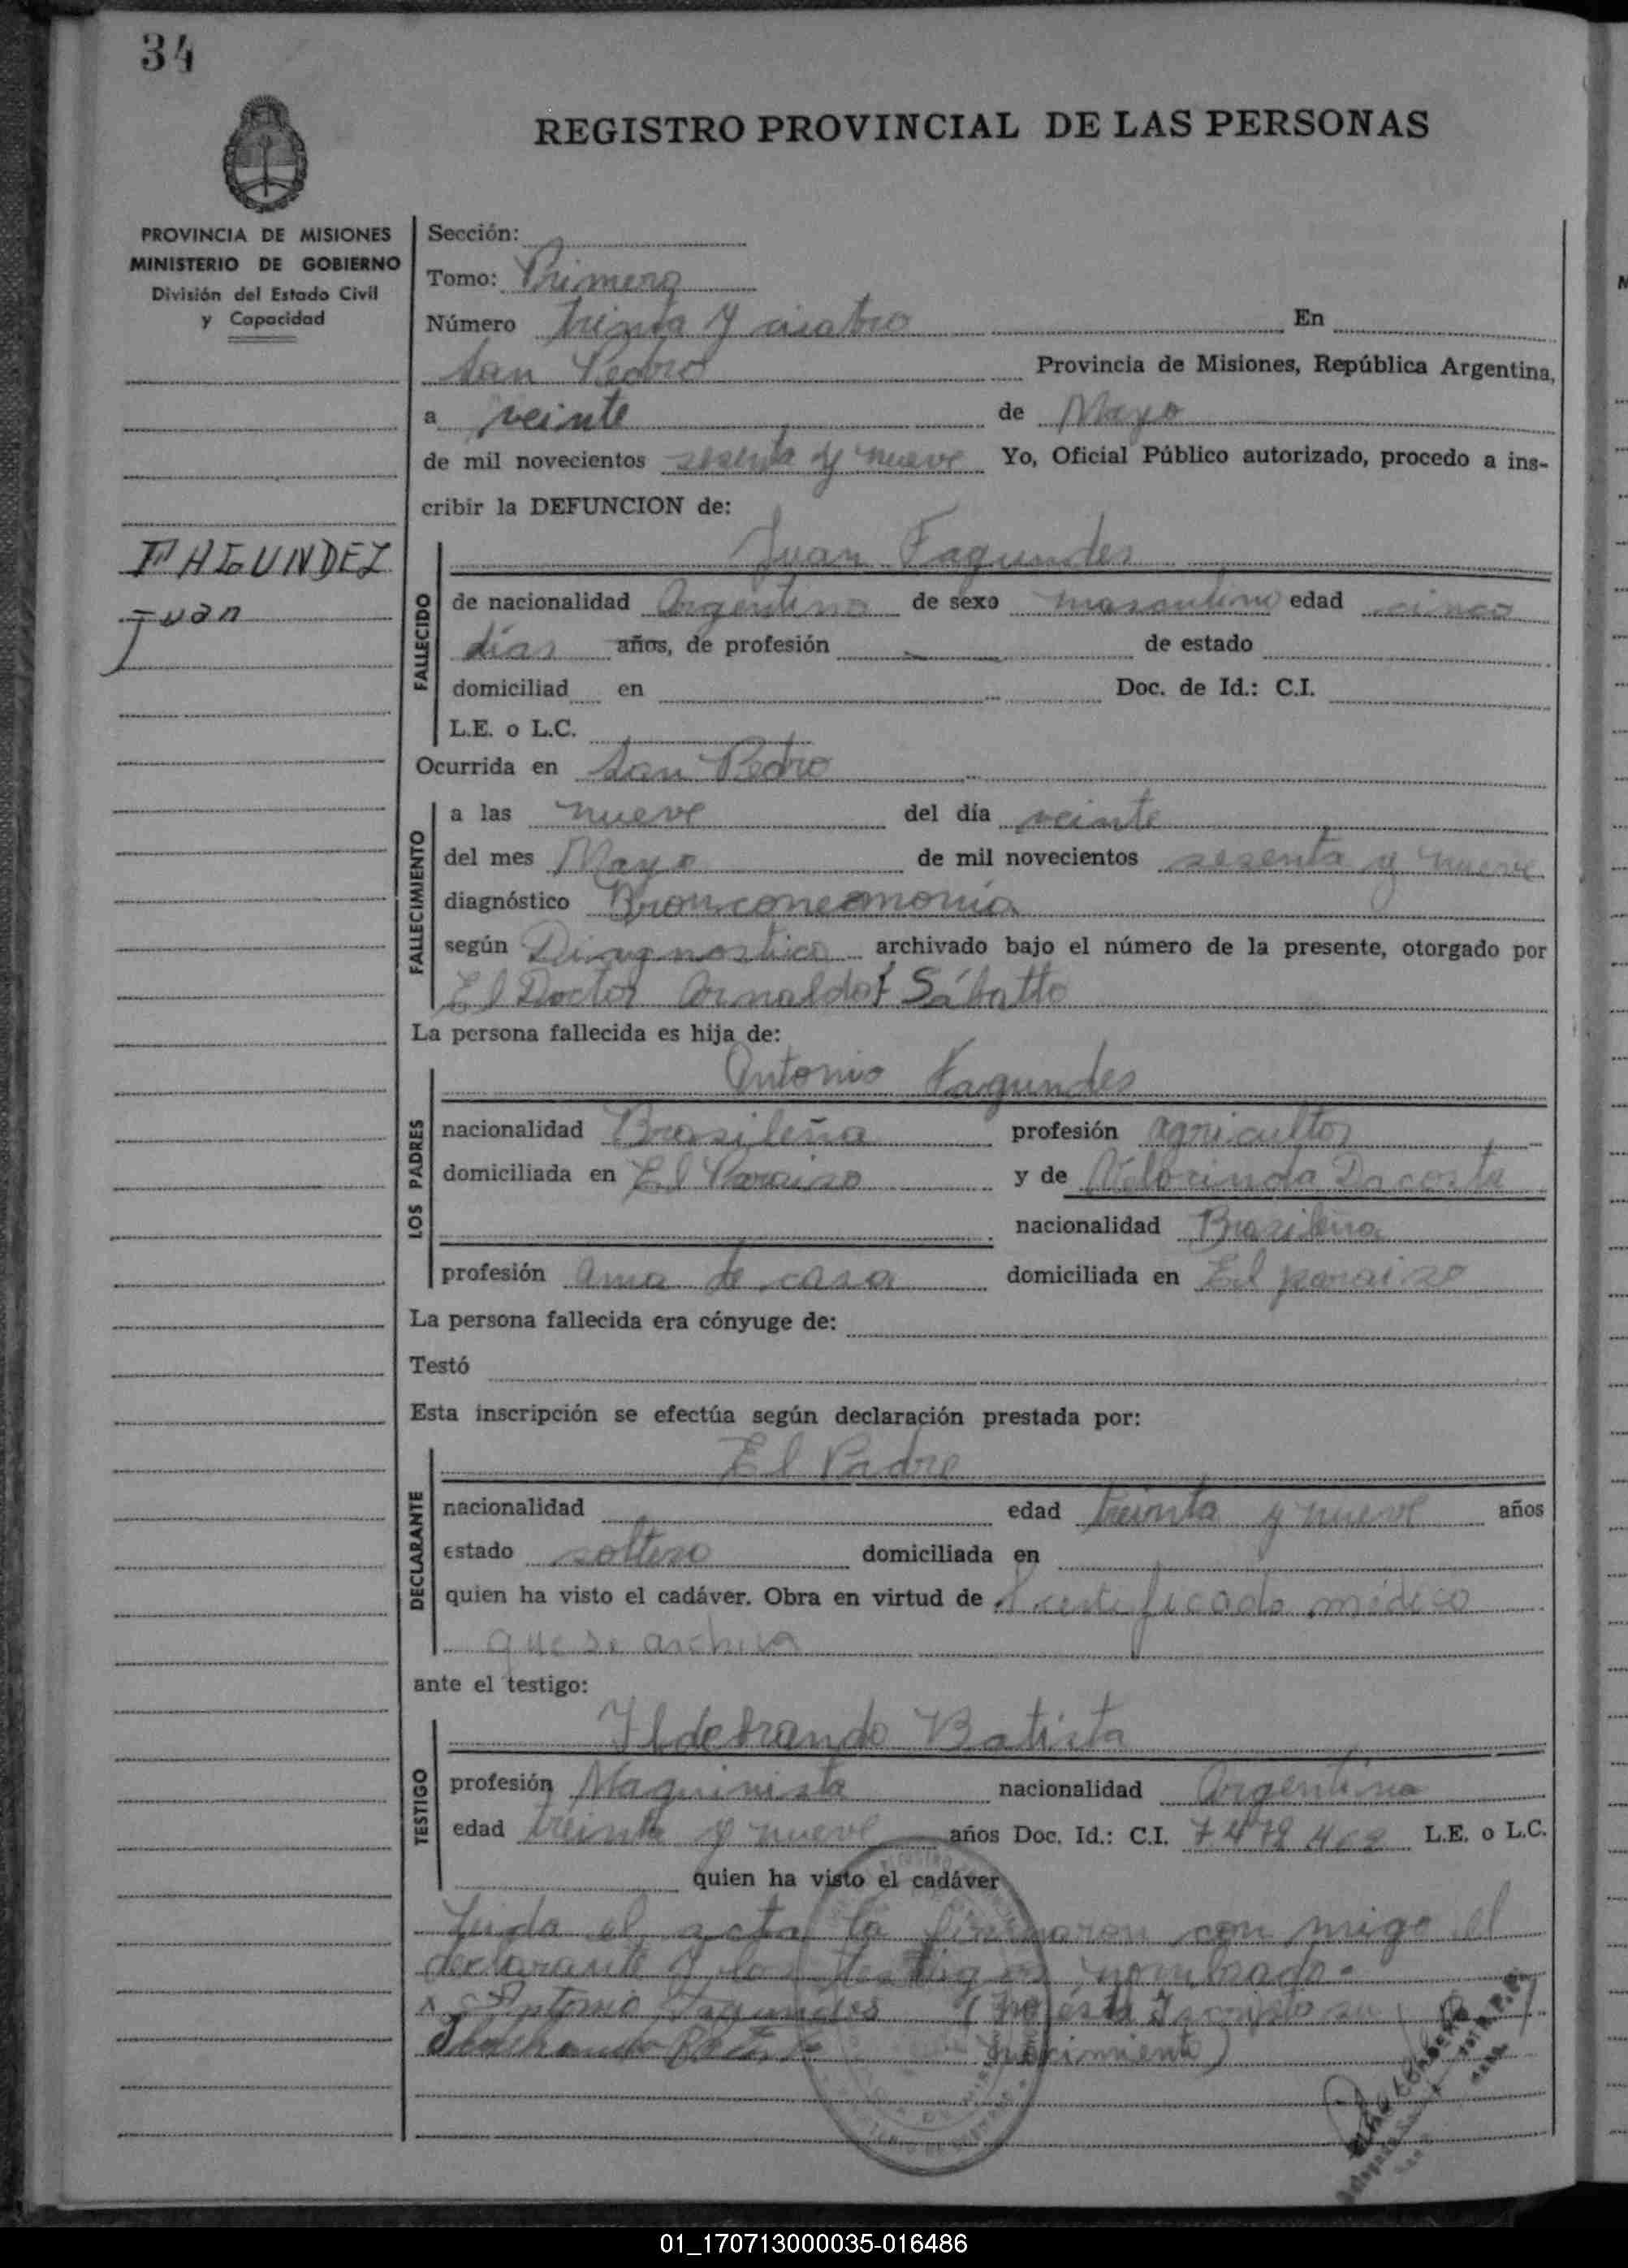 34
REGISTRO PROVINCIAL DE LAS PERSONAS
PROVINCIA DE MISIONES
MINISTERIO DE GOBIERNO
División del Estado Civil
y Capacidad
FAGUNDEZ
Juan
Sección:
Tomo: Primero
Número treinta y cuatro En
San Pedro Provincia de Misiones, República Argentina,
a veinte de Mayo
de mil novecientos sesenta y nueve Yo, Oficial Público autorizado, procedo a ins-
cribir la DEFUNCION de:
FALLECIDO
Juan Fagundes
de nacionalidad Argentina de sexo masculino edad cinco
días años, de profesión — de estado
domiciliad en Doc. de Id.: C.I.
L.E. o L.C.
Ocurrida en San Pedro
FALLECIMIENTO
a las nueve del día veinte
del mes Mayo de mil novecientos sesenta y nueve
diagnóstico Bronconeomonia
según Diagnostico archivado bajo el número de la presente, otorgado por
El Doctor Arnaldo Sábatto
La persona fallecida es hija de:
LOS PADRES
Antonio Fagundes
nacionalidad Brasileña profesión agricultor
domiciliada en El Paraiso y de Dacosta
nacionalidad Brasileña
profesión ama de casa domiciliada en El paraiso
La persona fallecida era cónyuge de:
Testó
Esta inscripción se efectúa según declaración prestada por:
DECLARANTE
El Padre
nacionalidad edad treinta y nueve años
estado soltero domiciliada en
quien ha visto el cadáver. Obra en virtud de certificado médico
que se archiva
ante el testigo:
TESTIGO
Ildebrando Batista
profesión Maquinista nacionalidad Argentina
edad treinta y nueve años Doc. Id.: C.I. L.E. o L.C.
quien ha visto el cadáver
Leida el acta la firmaron con migo el
declarante y los testigos nombrado.
x Antonio Fagundes (no está su
nacimiento)
01_170713000035-016486